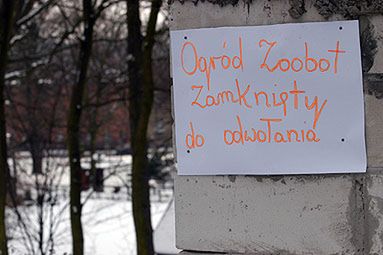 Ogród Zoobot
Zamknięty
do odwołania